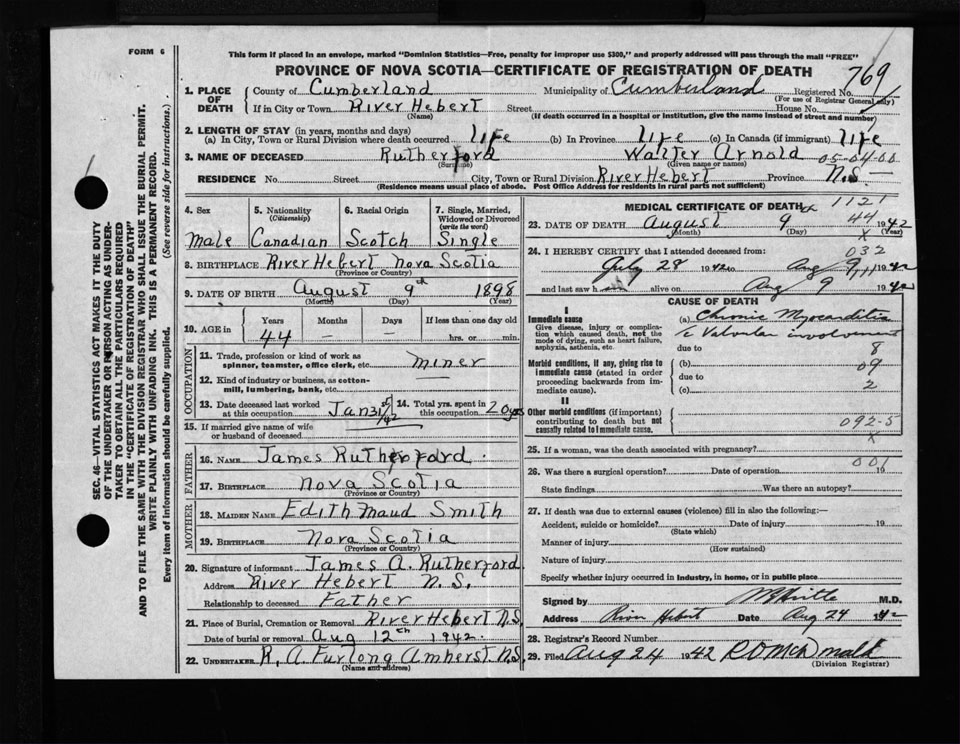 FORM 6
This form if placed in an envelope, marked "Dominion Statistics—Free, penalty for improper use $300," and properly addressed will pass through the mail "FREE"
PROVINCE OF NOVA SCOTIA—CERTIFICATE OF REGISTRATION OF DEATH
769
1. PLACE OF DEATH
County of Cumberland Municipality of Cumberland Registered No.
(For use of Registrar General only)
If in City or Town River Hebert Street House No.
(Name) (If death occurred in a hospital or institution, give the name instead of street and number)
2. LENGTH OF STAY (in years, months and days)
(a) In City, Town or Rural Division where death occurred life (b) In Province life (c) In Canada (if immigrant) life
3. NAME OF DECEASED Rutherford Walter Arnold 05-04-00
(Surname) (Given name or names)
RESIDENCE No. Street City, Town or Rural Division River Hebert Province N.S. —
(Residence means usual place of abode. Post Office Address for residents in rural parts not sufficient)
4. Sex 5. Nationality (Citizenship) 6. Racial Origin 7. Single, Married, Widowed or Divorced (write the word)
Male Canadian Scotch Single
8. BIRTHPLACE River Hebert Nova Scotia
(Province or Country)
9. DATE OF BIRTH August 9th 1898
(Month) (Day) (Year)
10. AGE in Years Months Days If less than one day old
44 — — hrs. or min.
OCCUPATION
11. Trade, profession or kind of work as spinner, teamster, office clerk, etc. miner
12. Kind of industry or business, as cotton-mill, lumbering, bank, etc. —
13. Date deceased last worked at this occupation Jan 31st/42 14. Total yrs. spent in this occupation 20 yrs
15. If married give name of wife or husband of deceased
FATHER
16. NAME James Rutherford.
17. BIRTHPLACE Nova Scotia
(Province or Country)
MOTHER
18. MAIDEN NAME Edith Maud Smith
19. BIRTHPLACE Nova Scotia
(Province or Country)
20. Signature of informant James A. Rutherford
Address River Hebert N.S.
Relationship to deceased Father
21. Place of Burial, Cremation or Removal River Hebert N.S.
Date of burial or removal Aug 12th 1942.
22. UNDERTAKER R. A. Furlong Amherst N.S.
(Name and address)
MEDICAL CERTIFICATE OF DEATH 1121
44
23. DATE OF DEATH August 9th 1942
(Month) (Day) (Year)
x
24. I HEREBY CERTIFY that I attended deceased from: 032
July 28 1942 to Aug 9 1942
and last saw h alive on Aug 9 1942
CAUSE OF DEATH
I
Immediate cause
Give disease, injury or complication which caused death, not the mode of dying, such as heart failure, asphyxia, asthenia, etc.
(a) Chronic Myocarditis
c Valvular involvement
due to 8
Morbid conditions, if any, giving rise to immediate cause (stated in order proceeding backwards from immediate cause).
(b) 09
due to
(c) 2
II
Other morbid conditions (if important) contributing to death but not causally related to immediate cause.
092-5
x
25. If a woman, was the death associated with pregnancy?
001
26. Was there a surgical operation? Date of operation 19
State findings Was there an autopsy?
27. If death was due to external causes (violence) fill in also the following:—
Accident, suicide or homicide? Date of injury 19
(State which)
Manner of injury
(How sustained)
Nature of injury
Specify whether injury occurred in industry, in home, or in public place
Signed by M.D.
Address River Hebert Date Aug 24 1942
28. Registrar's Record Number
29. Filed Aug 24 1942
(Division Registrar)
SEC. 46—VITAL STATISTICS ACT MAKES IT THE DUTY
OF THE UNDERTAKER OR PERSON ACTING AS UNDER-
TAKER TO OBTAIN ALL THE PARTICULARS REQUIRED
IN THE "CERTIFICATE OF REGISTRATION OF DEATH"
AND TO FILE THE SAME WITH THE DIVISION REGISTRAR WHO SHALL ISSUE THE BURIAL PERMIT.
WRITE PLAINLY WITH UNFADING INK. THIS IS A PERMANENT RECORD.
Every item of information should be carefully supplied. (See reverse side for instructions.)